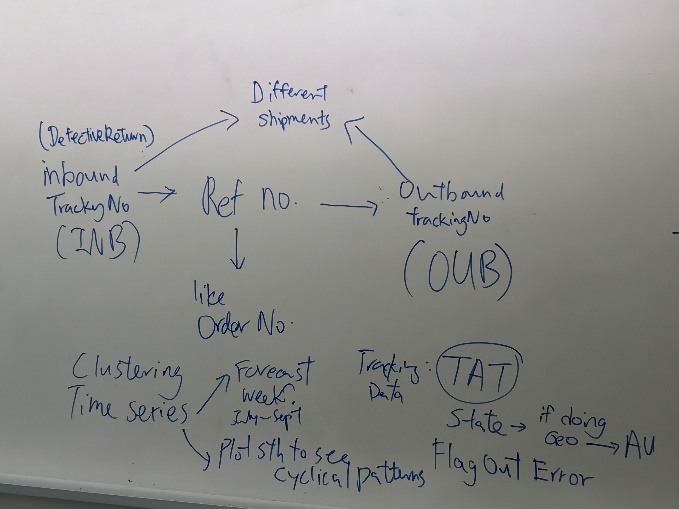 Different
shipments
(DefectiveReturn)
inbound
TrackyNo
(INB)
Ref no.
Outbound
trackingNo
(OUB)
like
Order No.
Clustering
Time series
Forecast
week.
July-Sept
Plot sth to see
cyclical patterns
Tracking:
Data
TAT
State → if doing
Geo → AU
Flag Out Error